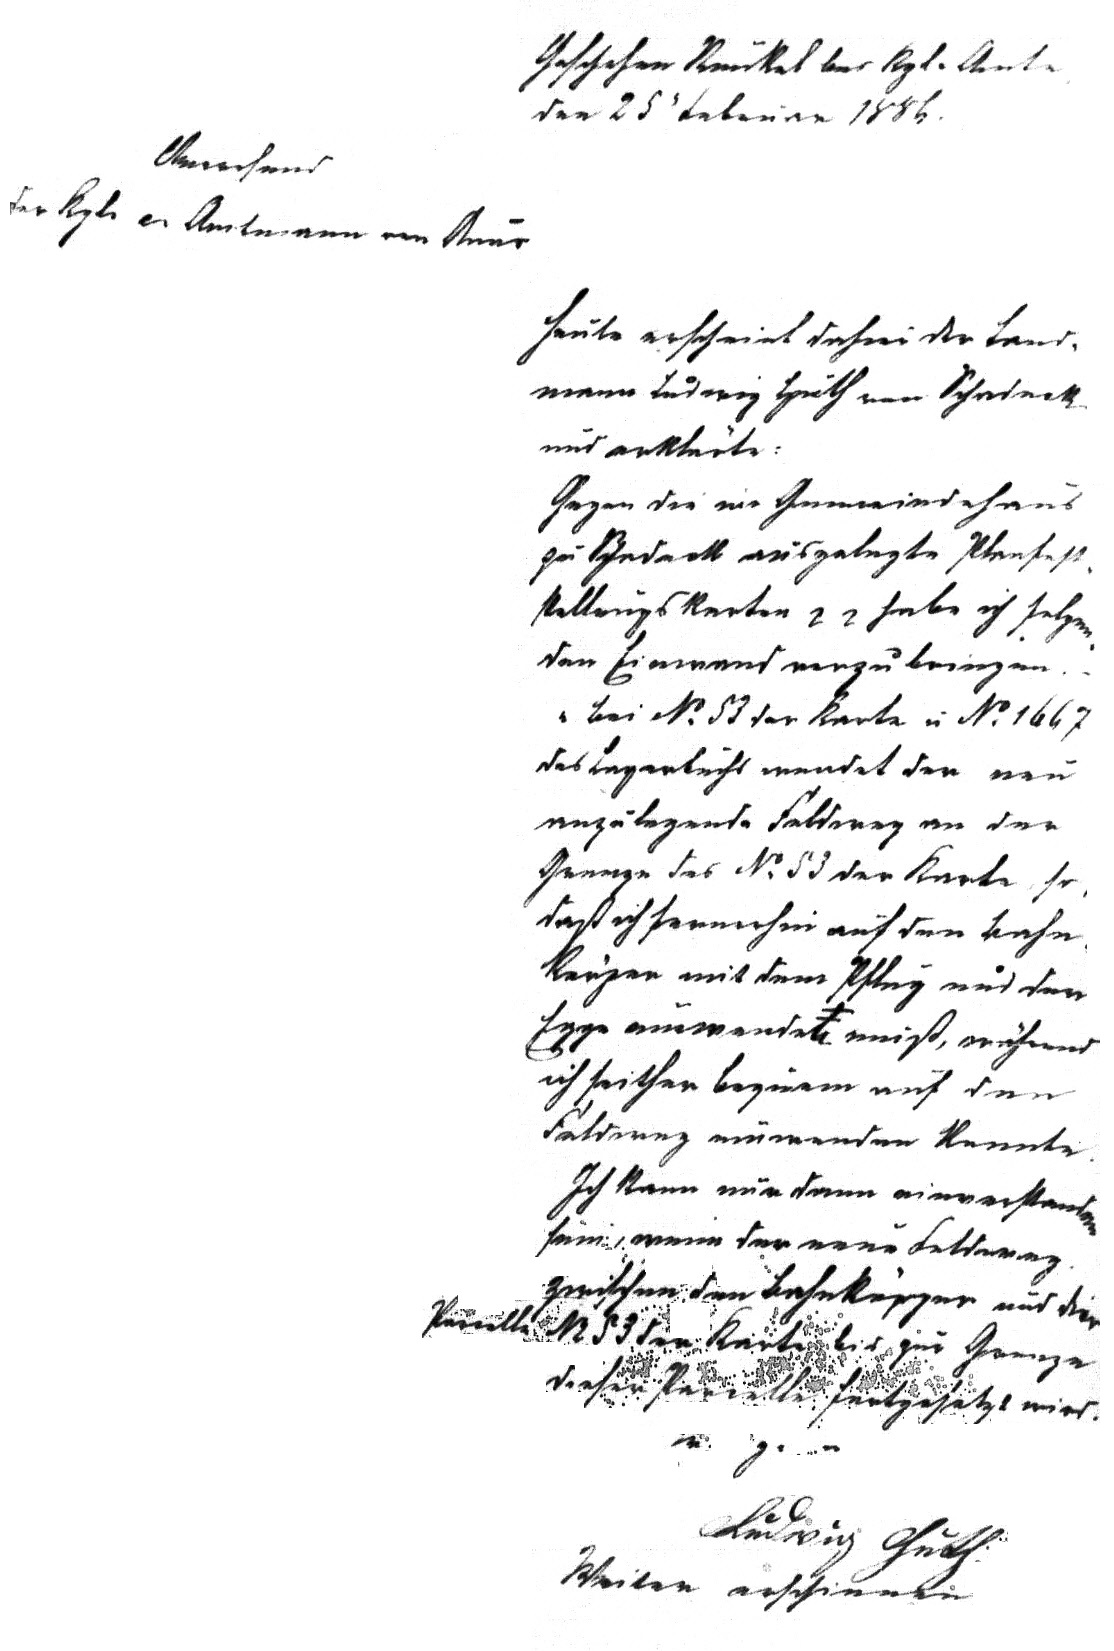 Geschehen Runkel bei Kgl. Amte
den 25' Februar 1886.
Anwesend
der Kgl. Amtmann von
Heute erscheint dahier der Land-
mann Ludwig Huth von Schadeck
und erklärte:
Gegen die im Gemeindehaus
zu Schadeck ausgelegte Planfest-
stellungskarten habe ich folgen-
den Einwand vorzubringen.
bei No. 53 der Karte u No. 1667
des Lagerbuchs wendet der neu
anzulegende Feldweg an der
Grenze des No. 53 der Karte, so
daß ich fernerhin auf den Bahn-
körper mit dem Pflug und der
Egge anwenden muß, während
ich seither bequem auf den
Feldweg anwenden konnte.
Ich kann nur dann einverstanden
sein, wenn der neue Feldweg
zwischen dem Bahnkörper und der
Parcelle No 53 der Karte bis zur Grenze
dieser Parcelle fortgesetzt wird.
v. g.
Ludwig Huth
Weiter erschienen